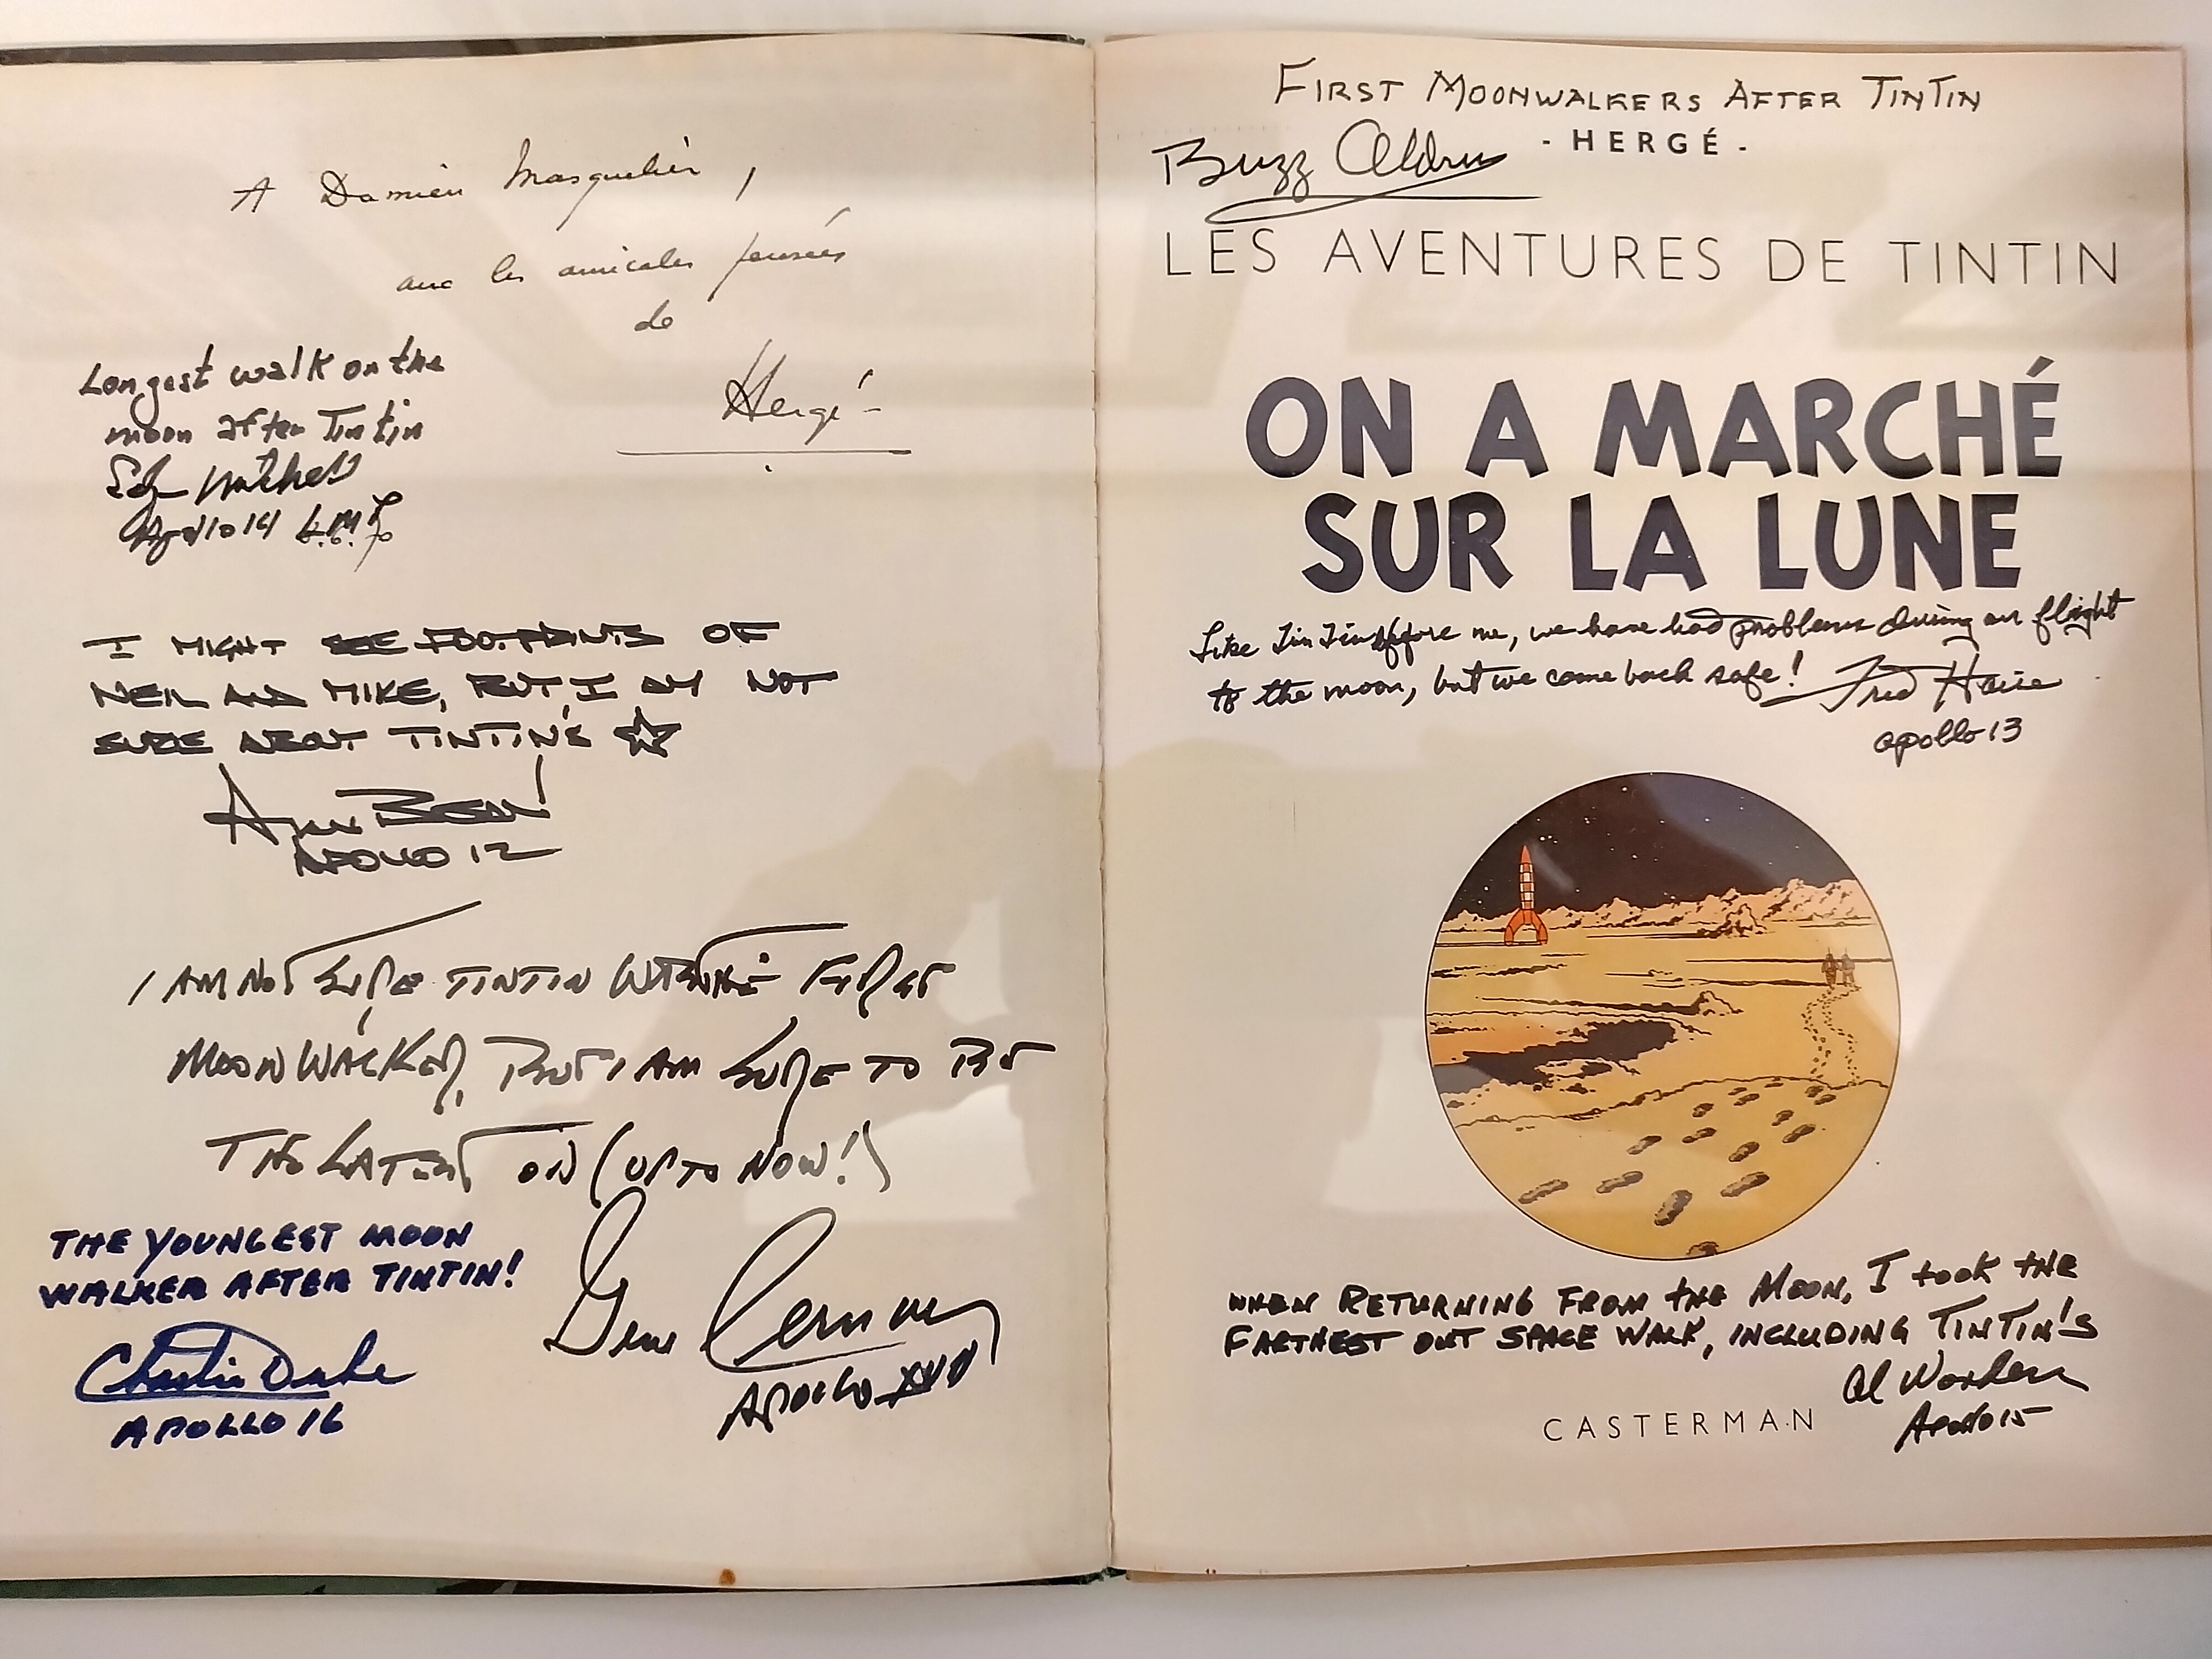 A Damien Masquelier,
avec les amicales pensées
de
Hergé
Longest walk on the
moon after Tintin
Edgar Mitchell
Apollo 14 L.M.P.
I MIGHT SEE FOOTPRINTS OF
NEIL AND MIKE, BUT, I AM NOT
SURE ABOUT TINTIN'S
ALAN BEAN
APOLLO 12
I AM NOT SURE TINTIN WAS THE FIRST
MOONWALKER, BUT I AM SURE TO BE
THE LATEST ON (UP TO NOW!)
Gene Cernan
APOLLO XVII
THE YOUNGEST MOON
WALKER AFTER TINTIN!
Charlie Duke
APOLLO 16
FIRST MOONWALKERS AFTER TINTIN
- HERGÉ -
Buzz Aldrin
LES AVENTURES DE TINTIN
ON A MARCHÉ
SUR LA LUNE
Like Tin Tin before me, we have had problems during our flight
to the moon, but we came back safe! Fred Haise
Apollo 13
WHEN RETURNING FROM THE MOON, I TOOK THE
FARTHEST OUT SPACE WALK, INCLUDING TINTIN'S
Al Worden
Apollo 15
CASTERMAN